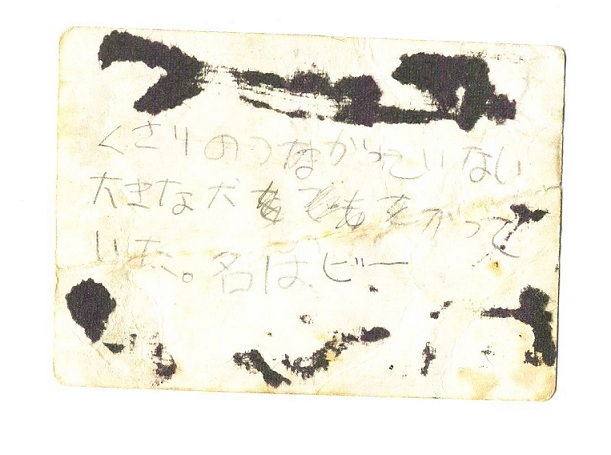 くさりのつながっていない
大きな犬をかって
いた。名は、ビー